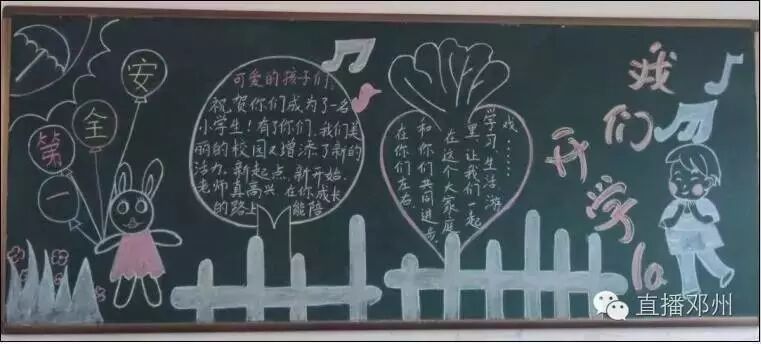 安
全
第
一
可爱的孩子们:
祝贺你们成为了一名
小学生!有了你们,我们美
丽的校园又增添了新的
活力,新起点,新开始.
老师真高兴,在你成长
的路上 能陪
在你们左右,
和你们共同进步。
在这个大家庭
里,让我们一起
学习、生活、游
戏……
我们
开学la
直播邓州